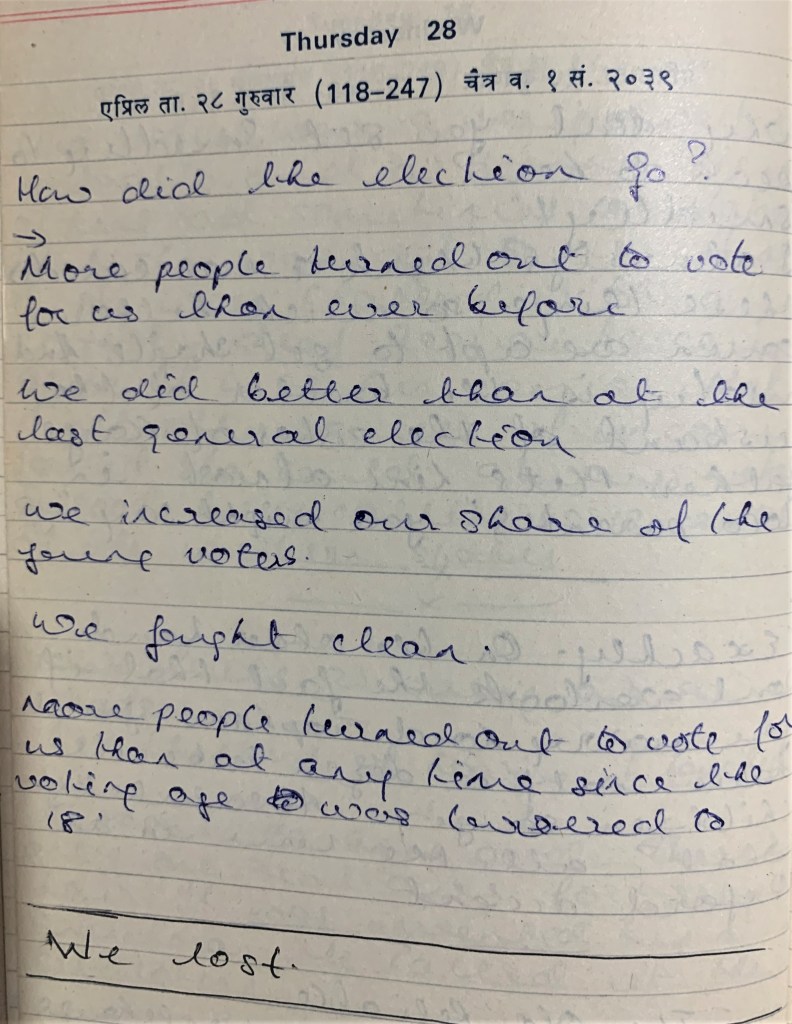 Thursday 28
एप्रिल ता. २८ गुरुवार (118-247) चैत्र व. १ सं. २०३९
How did the election go?
→
More people turned out to vote
for us than ever before
We did better than at the
last general election
We increased our share of the
young voters.
We fought clean.
More people turned out to vote for
us than at any time since the
voting age was lowered to
18'
We lost.